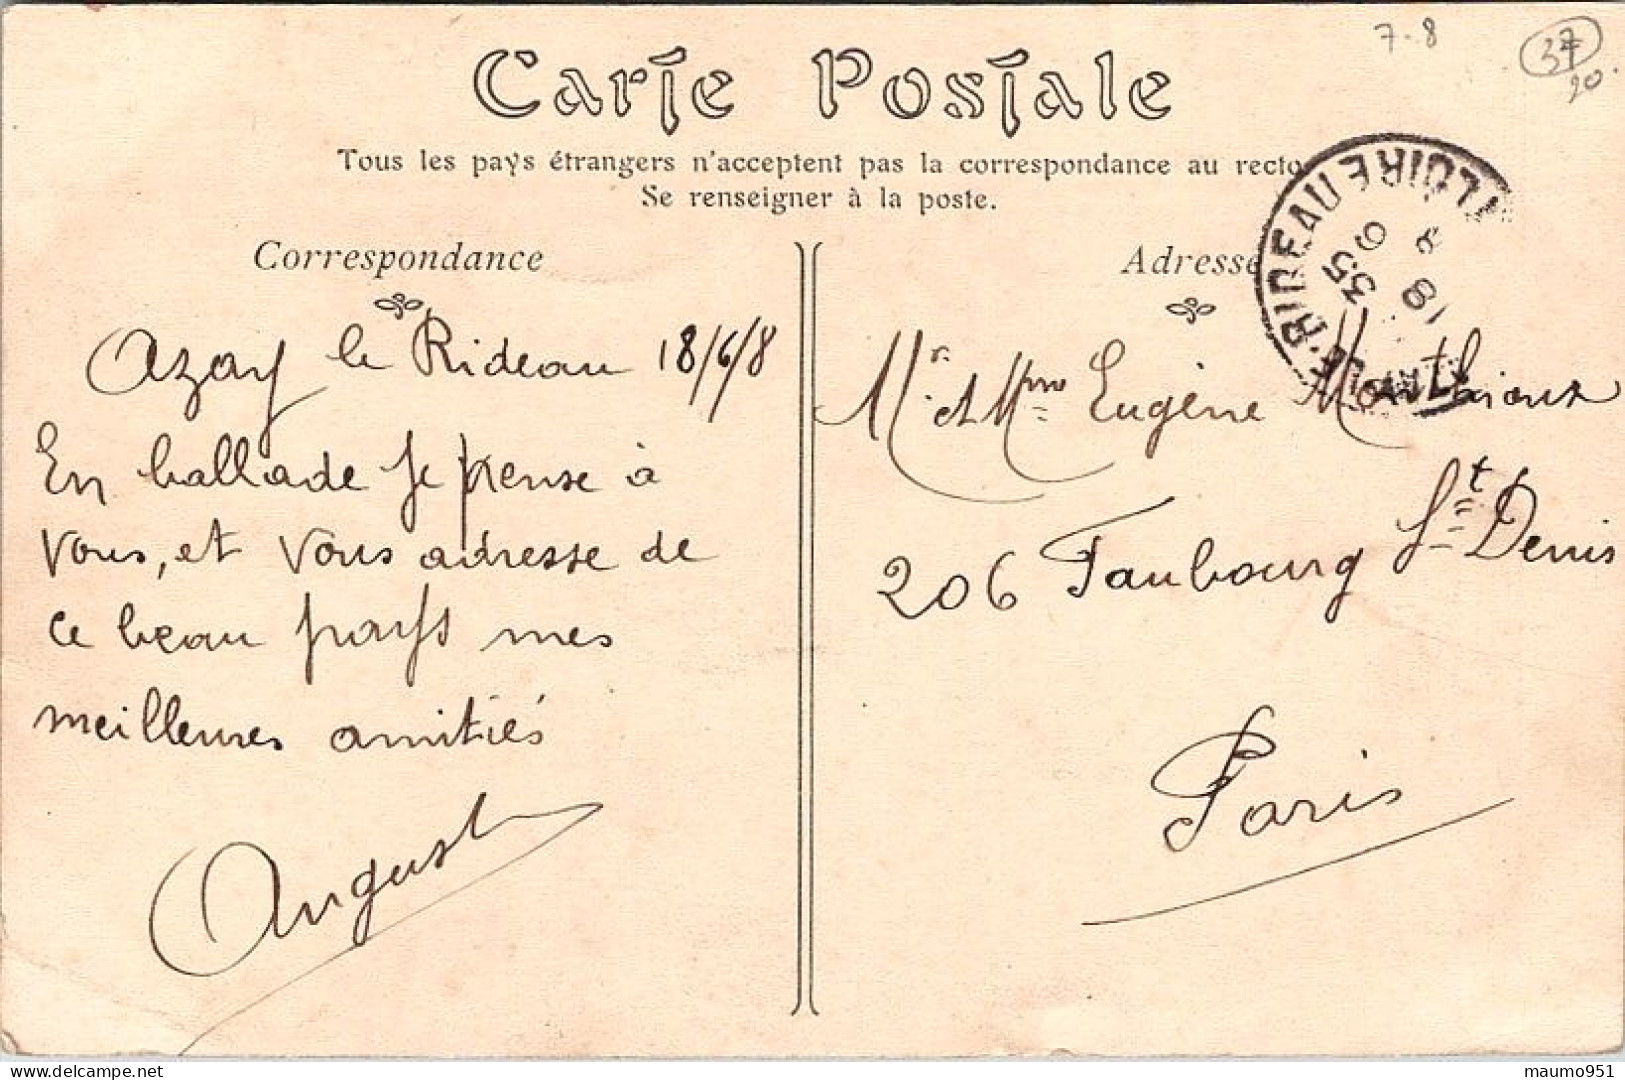 7-8
37
20.
Carte Postale
Tous les pays étrangers n'acceptent pas la correspondance au recto
Se renseigner à la poste.
Correspondance
Azay le Rideau 18/6/8
En ballade je pense à
vous, et vous adresse de
ce beau pays mes
meilleures amitiés
August
Adresse
Mr et Mme Eugène
206 Faubourg St Denis
Paris
LE RIDEAU INDRE ET LOIRE
9 35
18
8
delcampe.net
maumo951